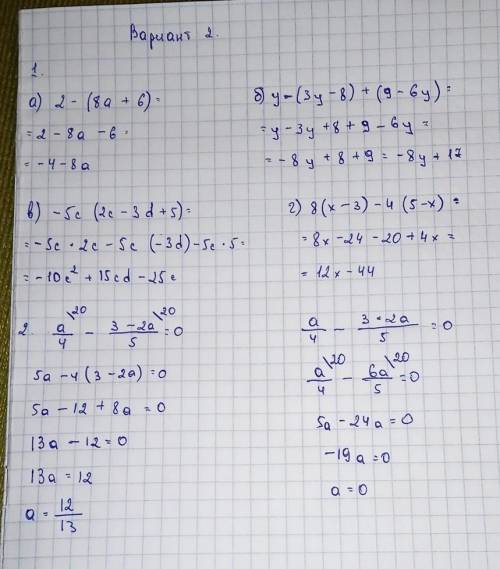 Вариант 2.
1.
а) 2 - (8a + 6) =
= 2 - 8a - 6 =
= -4 - 8a
б) y - (3y - 8) + (9 - 6y) =
= y - 3y + 8 + 9 - 6y =
= -8y + 8 + 9 = -8y + 17
в) -5c (2c - 3d + 5) =
= -5c · 2c - 5c (-3d) - 5c · 5 =
= -10c² + 15cd - 25c
г) 8(x - 3) - 4(5 - x) =
= 8x - 24 - 20 + 4x =
= 12x - 44
2. a\20/4 - 3 - 2a\20/5 = 0
5a - 4(3 - 2a) = 0
5a - 12 + 8a = 0
13a - 12 = 0
13a = 12
a = 12/13
a/4 - 3 · 2a/5 = 0
a\20/4 - 6a\20/5 = 0
5a - 24a = 0
-19a = 0
a = 0